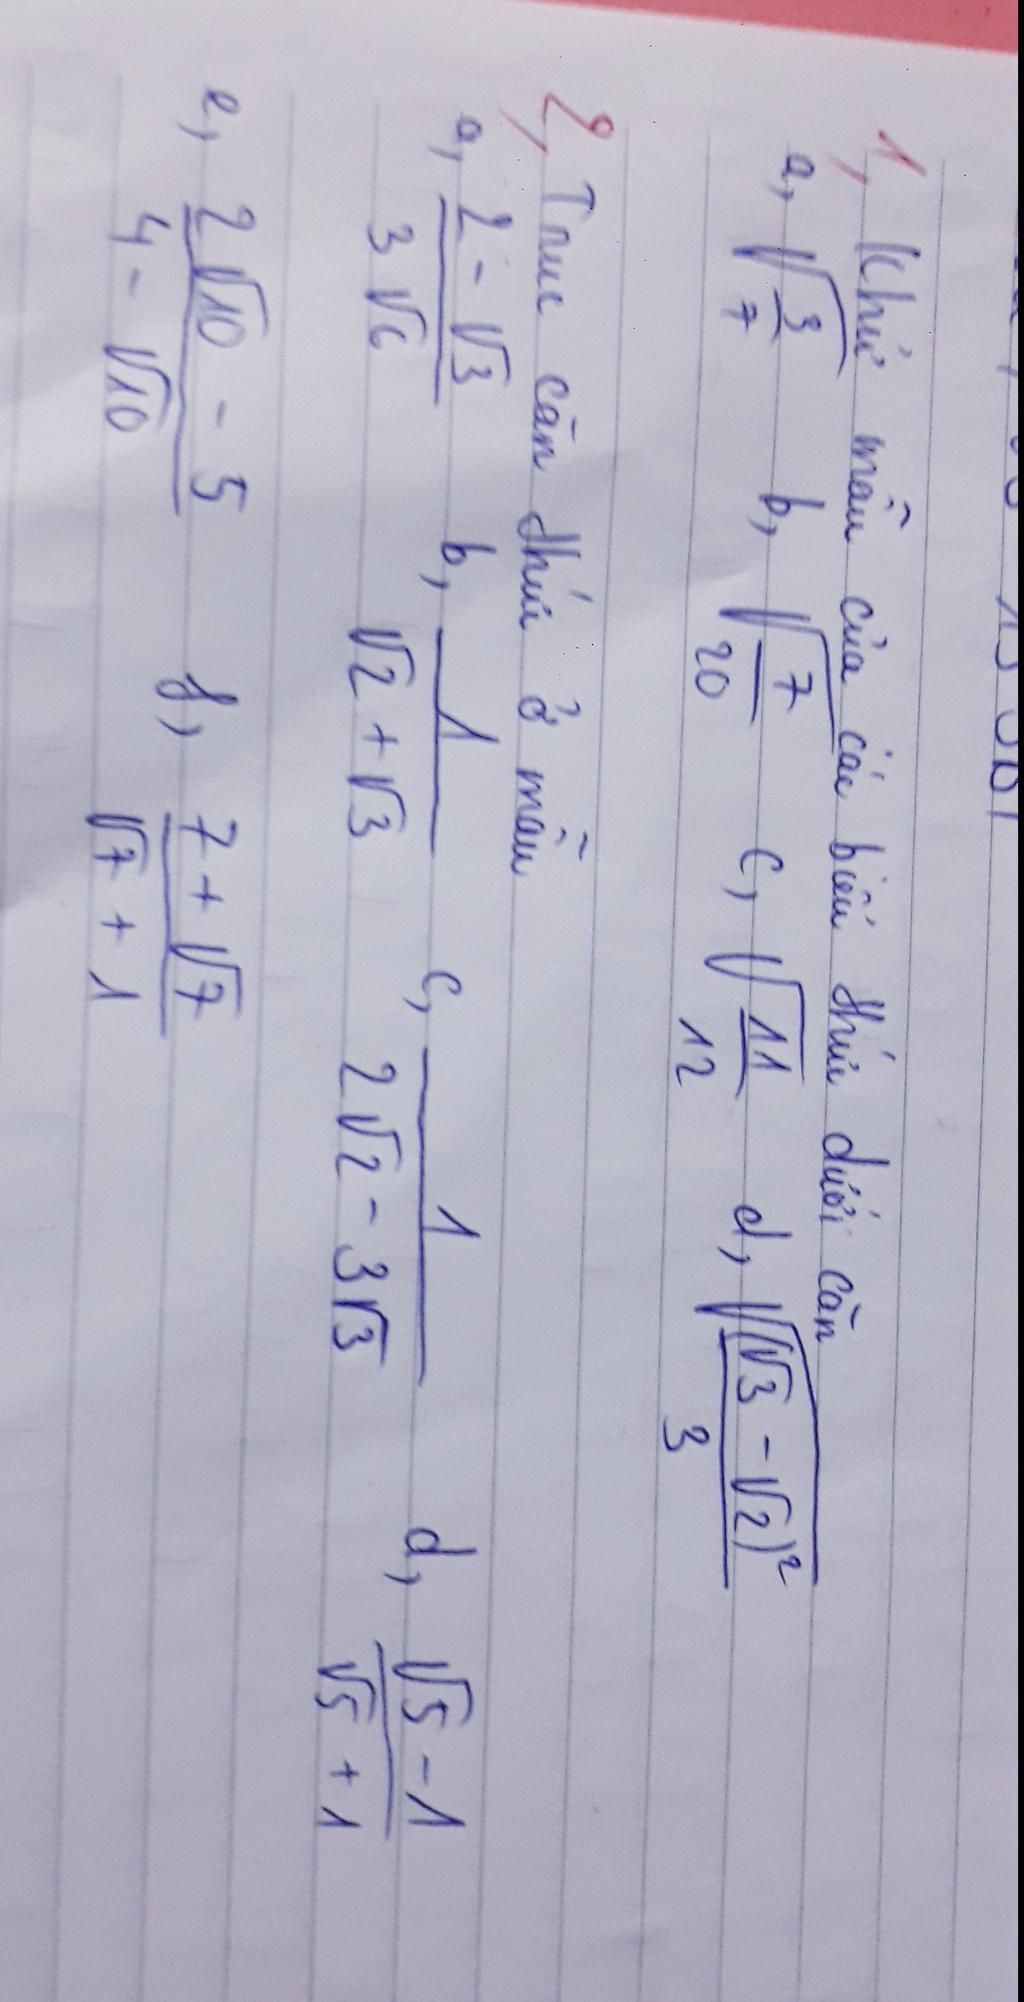 1, Khử mẫu của các biểu thức dưới căn
a, √(3/7) b, √(7/20) c, √(11/12) d, √((√3 - √2)²/3)
2, Trục căn thức ở mẫu
a, (2 - √3)/(3√6) b, 1/(√2 + √3) c, 1/(2√2 - 3√3) d, (√5 - 1)/(√5 + 1)
e, (2√10 - 5)/(4 - √10) f, (7 + √7)/(√7 + 1)